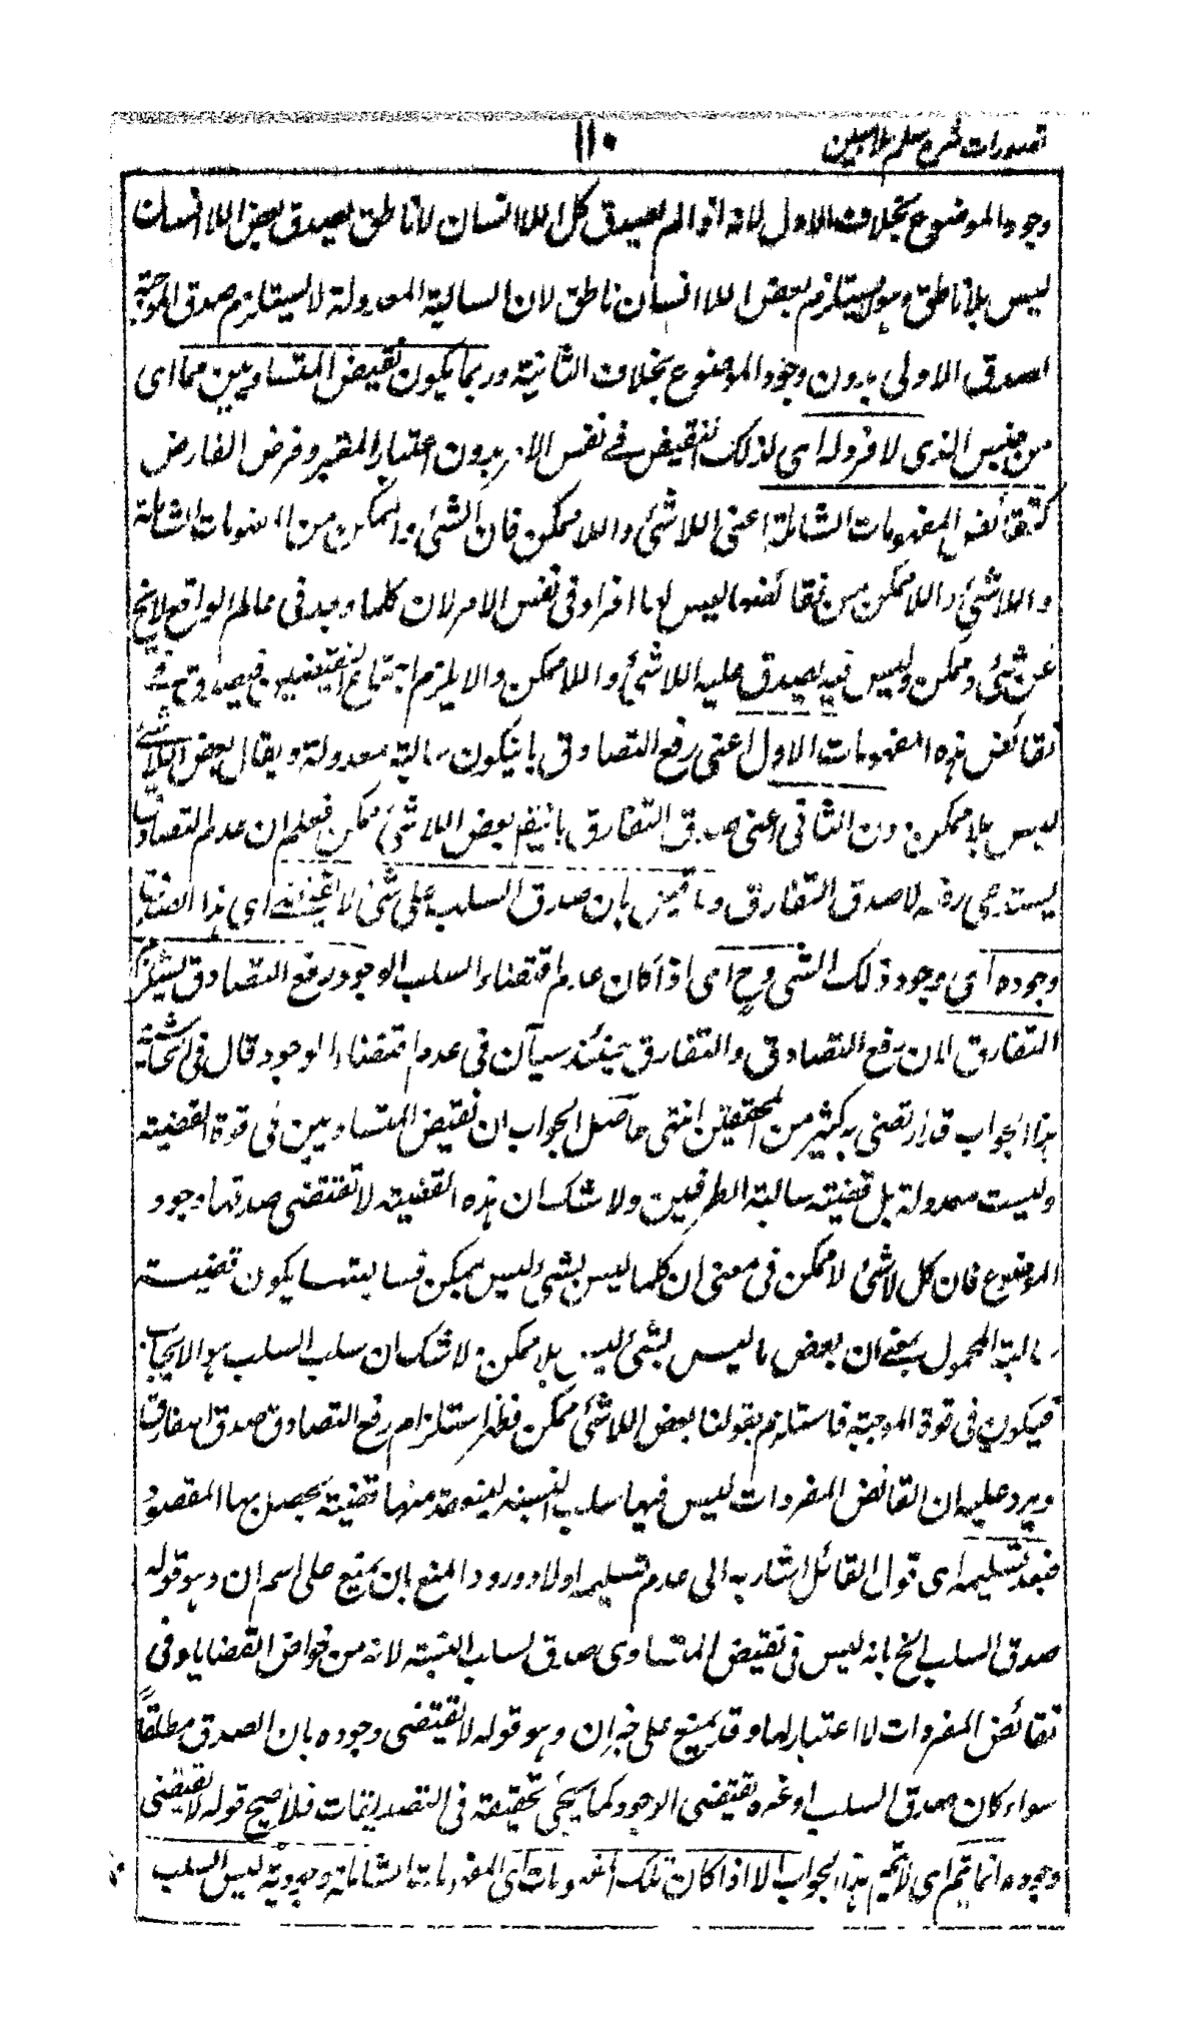 تصورات شرح سلم ملا مبین ۱۱۰
وجود الموضوع بخلاف الاول لانه اذا لم يصدق كل اللا انسان لا ناطق يصدق بعض اللا انسان
ليس بلا ناطق وهو لا يستلزم بعض اللا انسان ناطق لان السالبة المعدولة لا يستلزم صدق الموجبة
لصدق الاولى بدون وجود الموضوع بخلاف الثانية وربما يكون نقيض المتساويين مما اى
من جنس الذى لا فرد له اى لذلك النقيض فے نفس الامر بدون اعتبار المعتبر وفرض الفارض
كنقائض المفهومات الشاملة اعنى اللاشئ واللا ممكن فان الشئ والممكن من المفهومات الشاملة
واللاشئ واللا ممكن من نقائضها ليس لها افراد فى نفس الامر لان كلما وجد فى عالم الواقع لا يخ
عن شئ وممكن وليس فيه يصدق عليه اللاشئ واللا ممكن والا يلزم اجتماع النقيضين فيصدق ح فے
نقائض هذه المفهومات الاول اعنى رفع التصادق بان يكون سالبة معدولة ويقال بعض اللاشئ
ليس بلا ممكن دون الثانى اعنى صدق التفارق بان يقم بعض اللاشئ ممكن فعلم ان عدم التصادق
يستدعى رفعه لا صدق التفارق وما قيل بان صدق السلب على شئ لا يقتضے اى هذا الصدق
وجوده اى وجود ذلك الشى وح اى اذا كان عدم اقتضاء السلب الوجود رفع التصادق يستلزم
التفارق لان رفع التصادق والتفارق حينئذ سيان فى عدم اقتضاء الوجود قال فى الحاشية
هذا الجواب قد ارتضى به كثير من المحققين انتهى حاصل الجواب ان نقيض المتساويين فى قوة القضية
وليست معدولة بل قضية سالبة الطرفين ولا شك ان هذه القضية لا تقتضى صدقها وجود
الموضوع فان كل لاشئ لا ممكن فى معنى ان كلما ليس بشئ ليس بممكن فسالبتها يكون قضية
سالبة المحمول بمعنے ان بعض ما ليس بشئ ليس بلا ممكن ولا شك ان سلب السلب هو الايجاب
فيكون فى قوة الموجبة فاستلزم بقولنا بعض اللاشئ ممكن فظهر استلزام رفع التصادق صدق التفارق
ويرد عليه ان نقائض المفردات ليس فيها سلب النسبة لينعقد منها قضية يحصل بها المقصود
فبعد تسليمه اى قول القائل اشار به الى عدم تسليمه اولا وورود المنع بان يمنع على اسم ان وهو قوله
صدق السلب الخ بانه ليس فى نقيض المتساوى صدق لسلب النسبة لانه من خواص القضايا وفى
نقائض المفردات لا اعتبار لها وقد يمنع على خبر ان وهو قوله لا يقتضى وجوده بان الصدق مطلقاً
سواء كان صدق السلب او غيره يقتضى الوجود كما يجئ تحقيقه فى التصديقات فلا يصح قوله لا يقتضى
وجوده انما يتم اى لا يتم هذا الجواب الا اذا كان تلك المفهومات اى المفهومات الشاملة وجودية ليس السلب